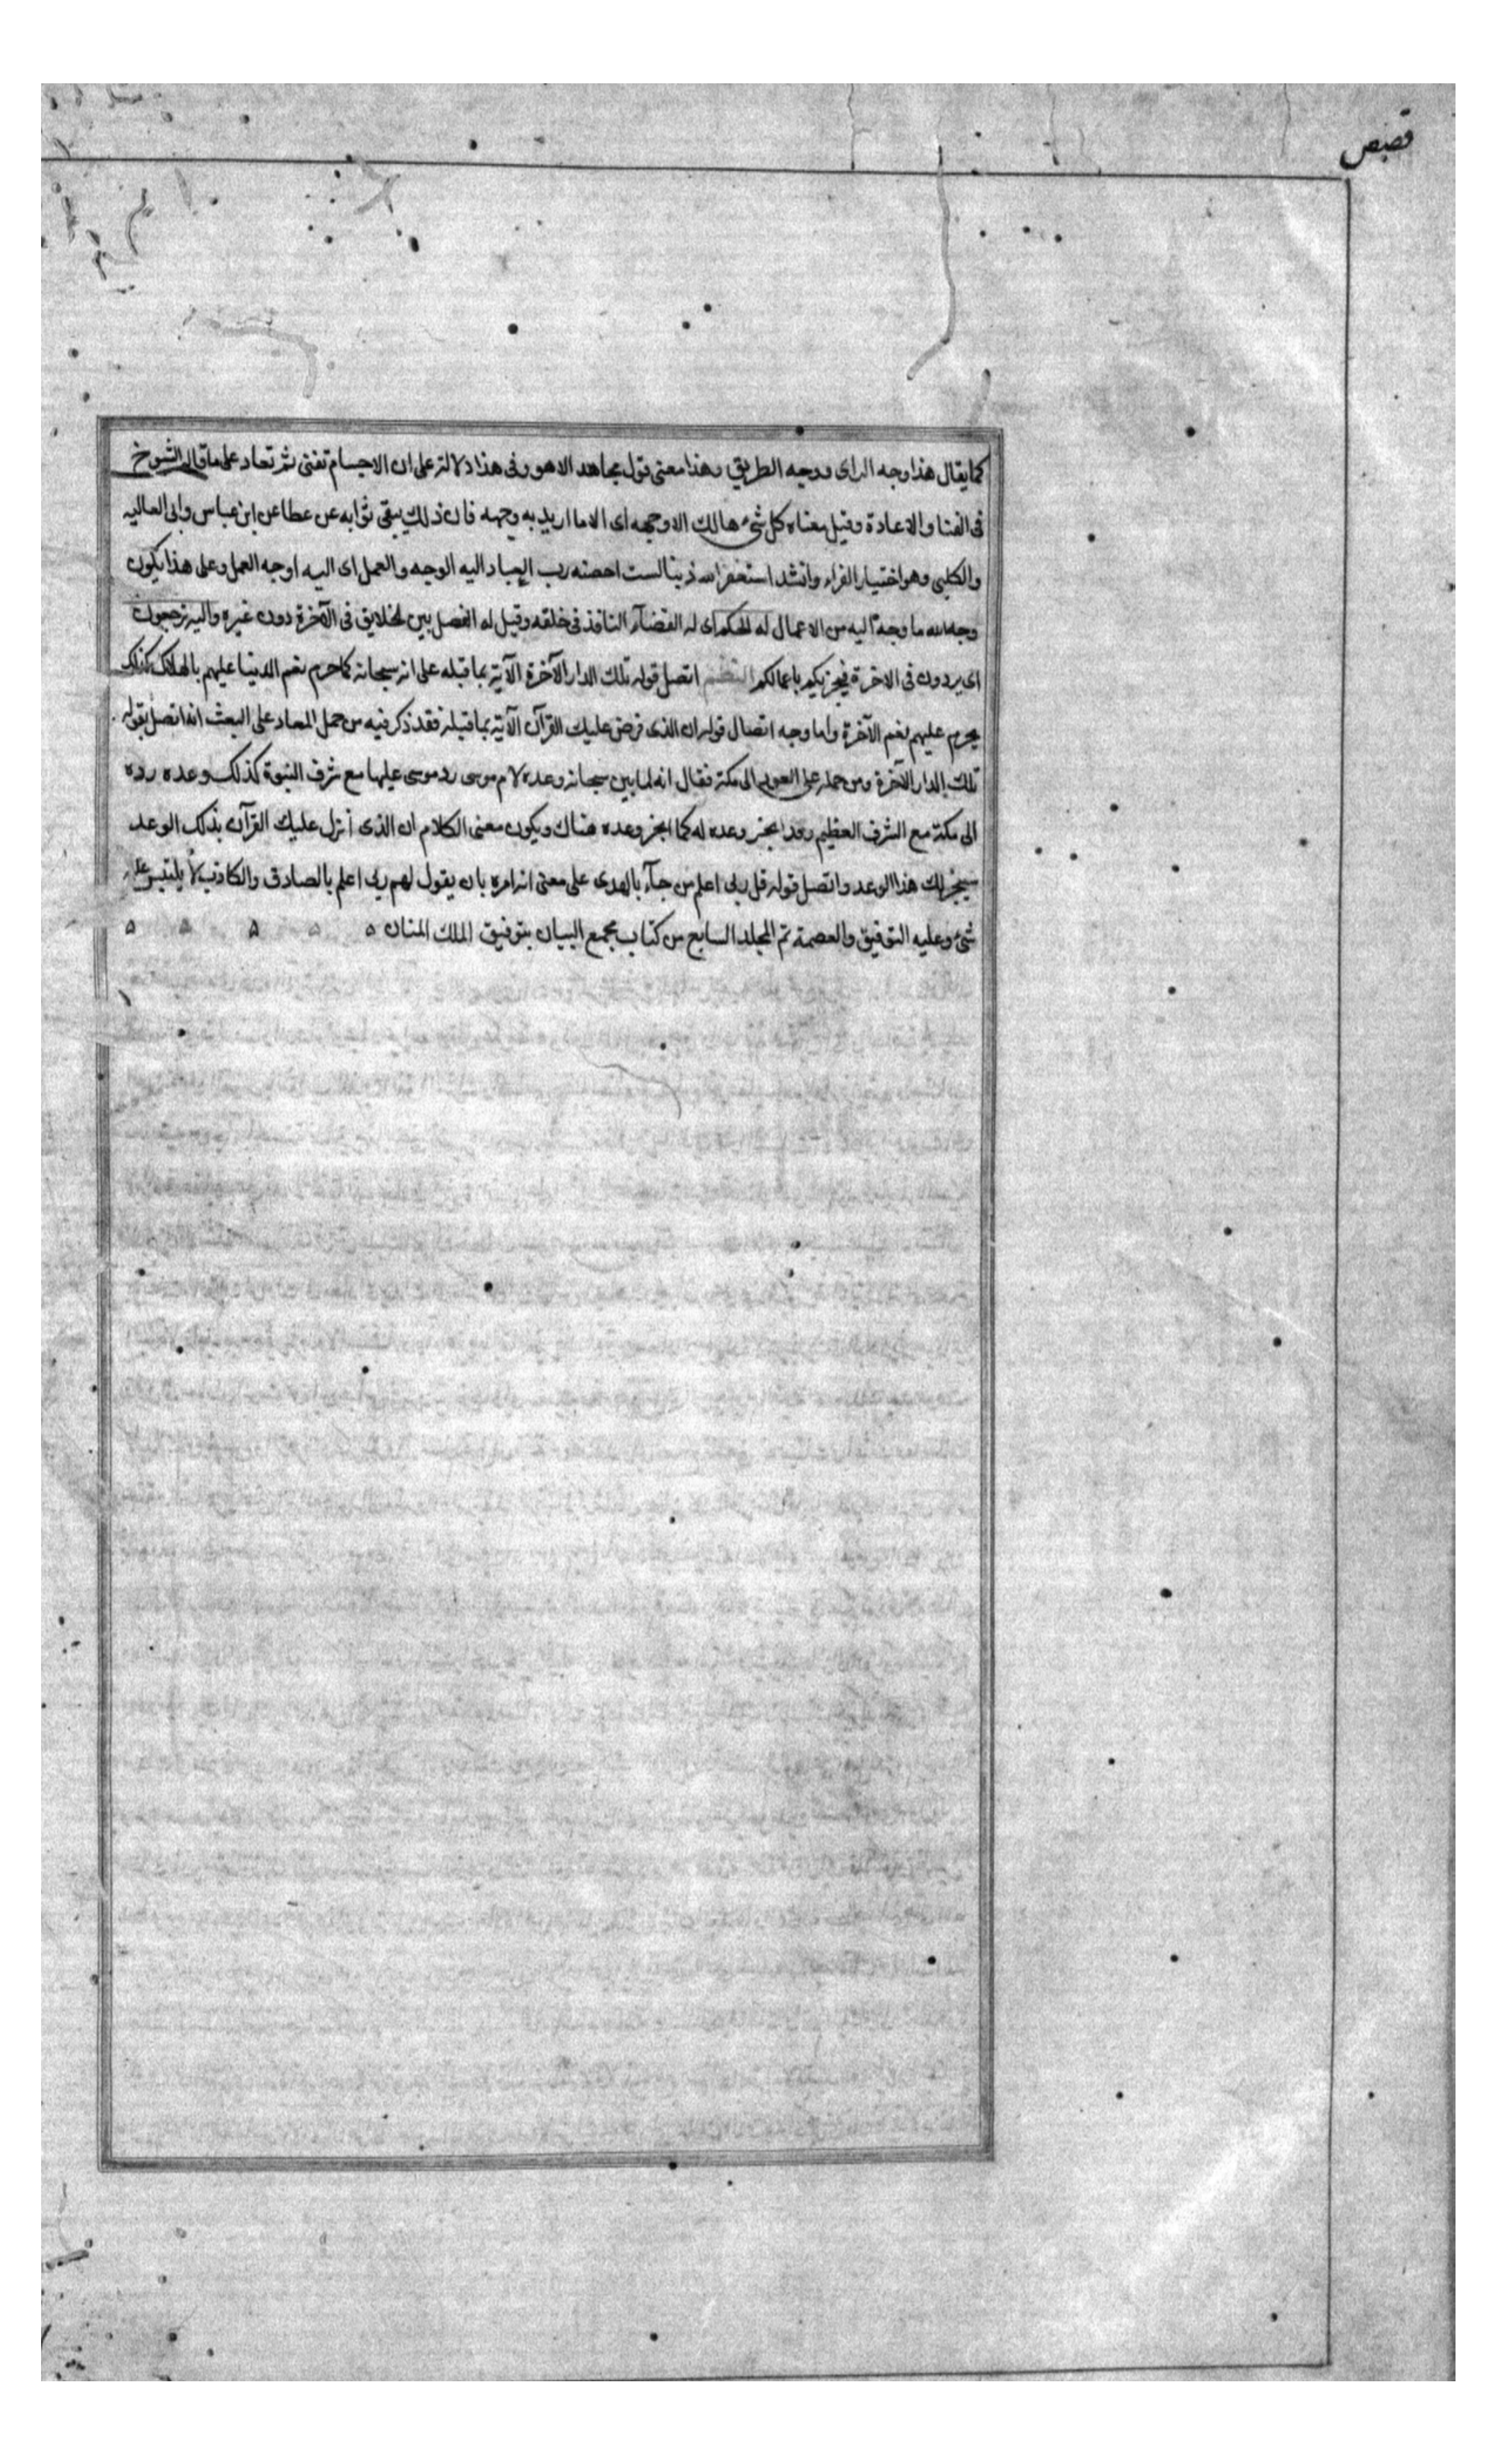 قصص
كما يقال هذا وجه الراى ووجه الطريق وهذا معنى قول مجاهد الاهو وفى هذا دلالة على ان الاجسام تفنى ثم تعاد على ما قاله الشيوخ
فى الفنا والاعادة وقيل معناه كل شئ هالك الا وجهه اى الا ما اريد به وجهه فان ذلك يبقى ثوابه عن عطا عن ابن عباس وابى العاليه
والكلبى وهو اختيار الفراء وانشد استغفر الله ذنبا لست احصه رب العباد اليه الوجه والعمل اى اليه اوجه العمل وعلى هذا يكون
وجه الله ما وجه اليه من الاعمال له الحكم اى له القضآء النافذ فى خلقه وقيل له الفصل بين الخلايق فى الآخرة دون غيره واليه ترجعون
اى يردون فى الاخرة فيجزيكم باعمالكم النظم اتصل قوله تلك الدار الآخرة الآية بما قبله على انه سبحانه كما حرم نعم الدنيا عليهم بالهلاك كذلك
يحرم عليهم نعم الآخرة واما وجه اتصال قوله ان الذى فرض عليك القرآن الآية بما قبله فقد ذكر فيه من حمل المعاد على البعث انه اتصل بقوله
تلك الدار الآخرة ومن حمله على العود الى مكة فقال انه لما بين سبحانه وعده لام موسى رد موسى عليها مع شرف النبوة كذلك وعده رده
الى مكة مع الشرف العظيم وقد انجز وعده له كما انجز وعده هناك ويكون معنى الكلام ان الذى أنزل عليك القرآن بذلك الوعد
سينجز لك هذا الوعد واتصل قوله قل ربى اعلم من جآء بالهدى على معنى انه امره بان يقول لهم ربى اعلم بالصادق والكاذب لا يلتبس عليه
شئ وعليه التوفيق والعصمة تم المجلد السابع من كتاب مجمع البيان بتوفيق الملك المنان ۵ ۵ ۵ ۵ ۵